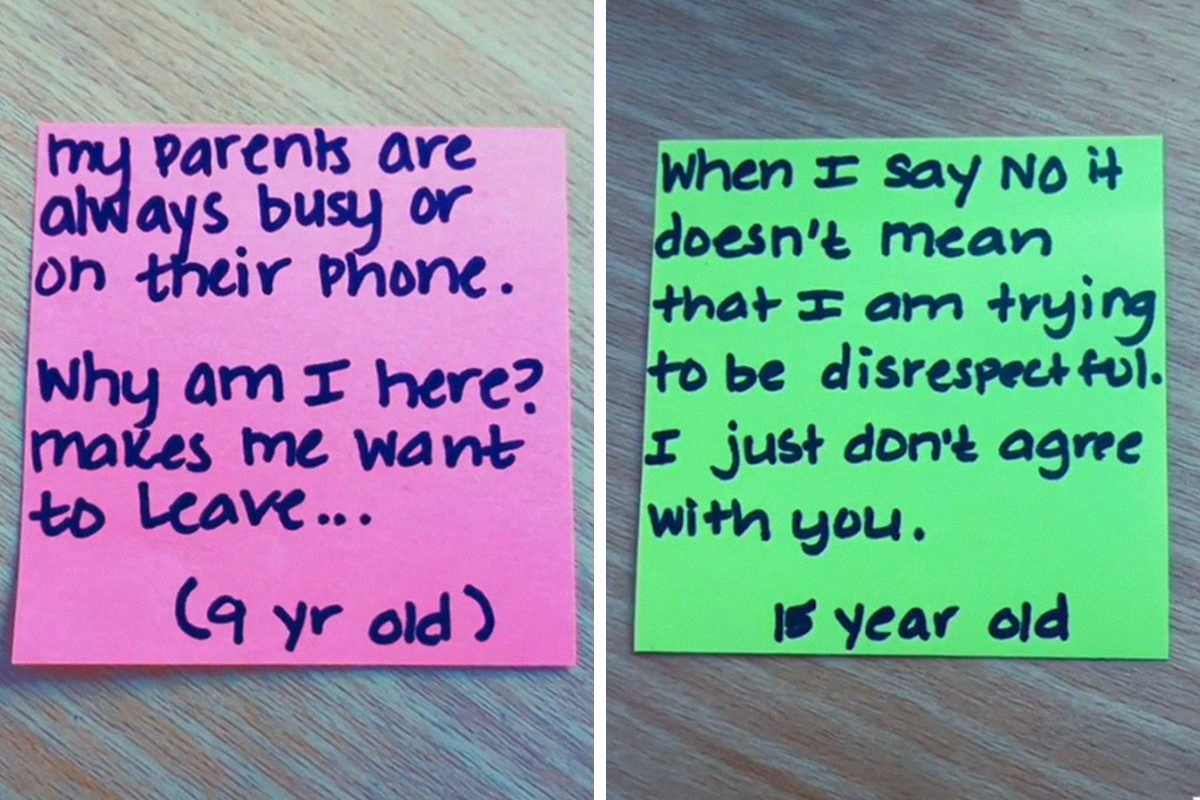 my parents are
always busy or
on their phone.
Why am I here?
makes me want
to leave...
(9 yr old)
When I say NO it
doesn't mean
that I am trying
to be disrespectful.
I just don't agree
with you.
15 year old